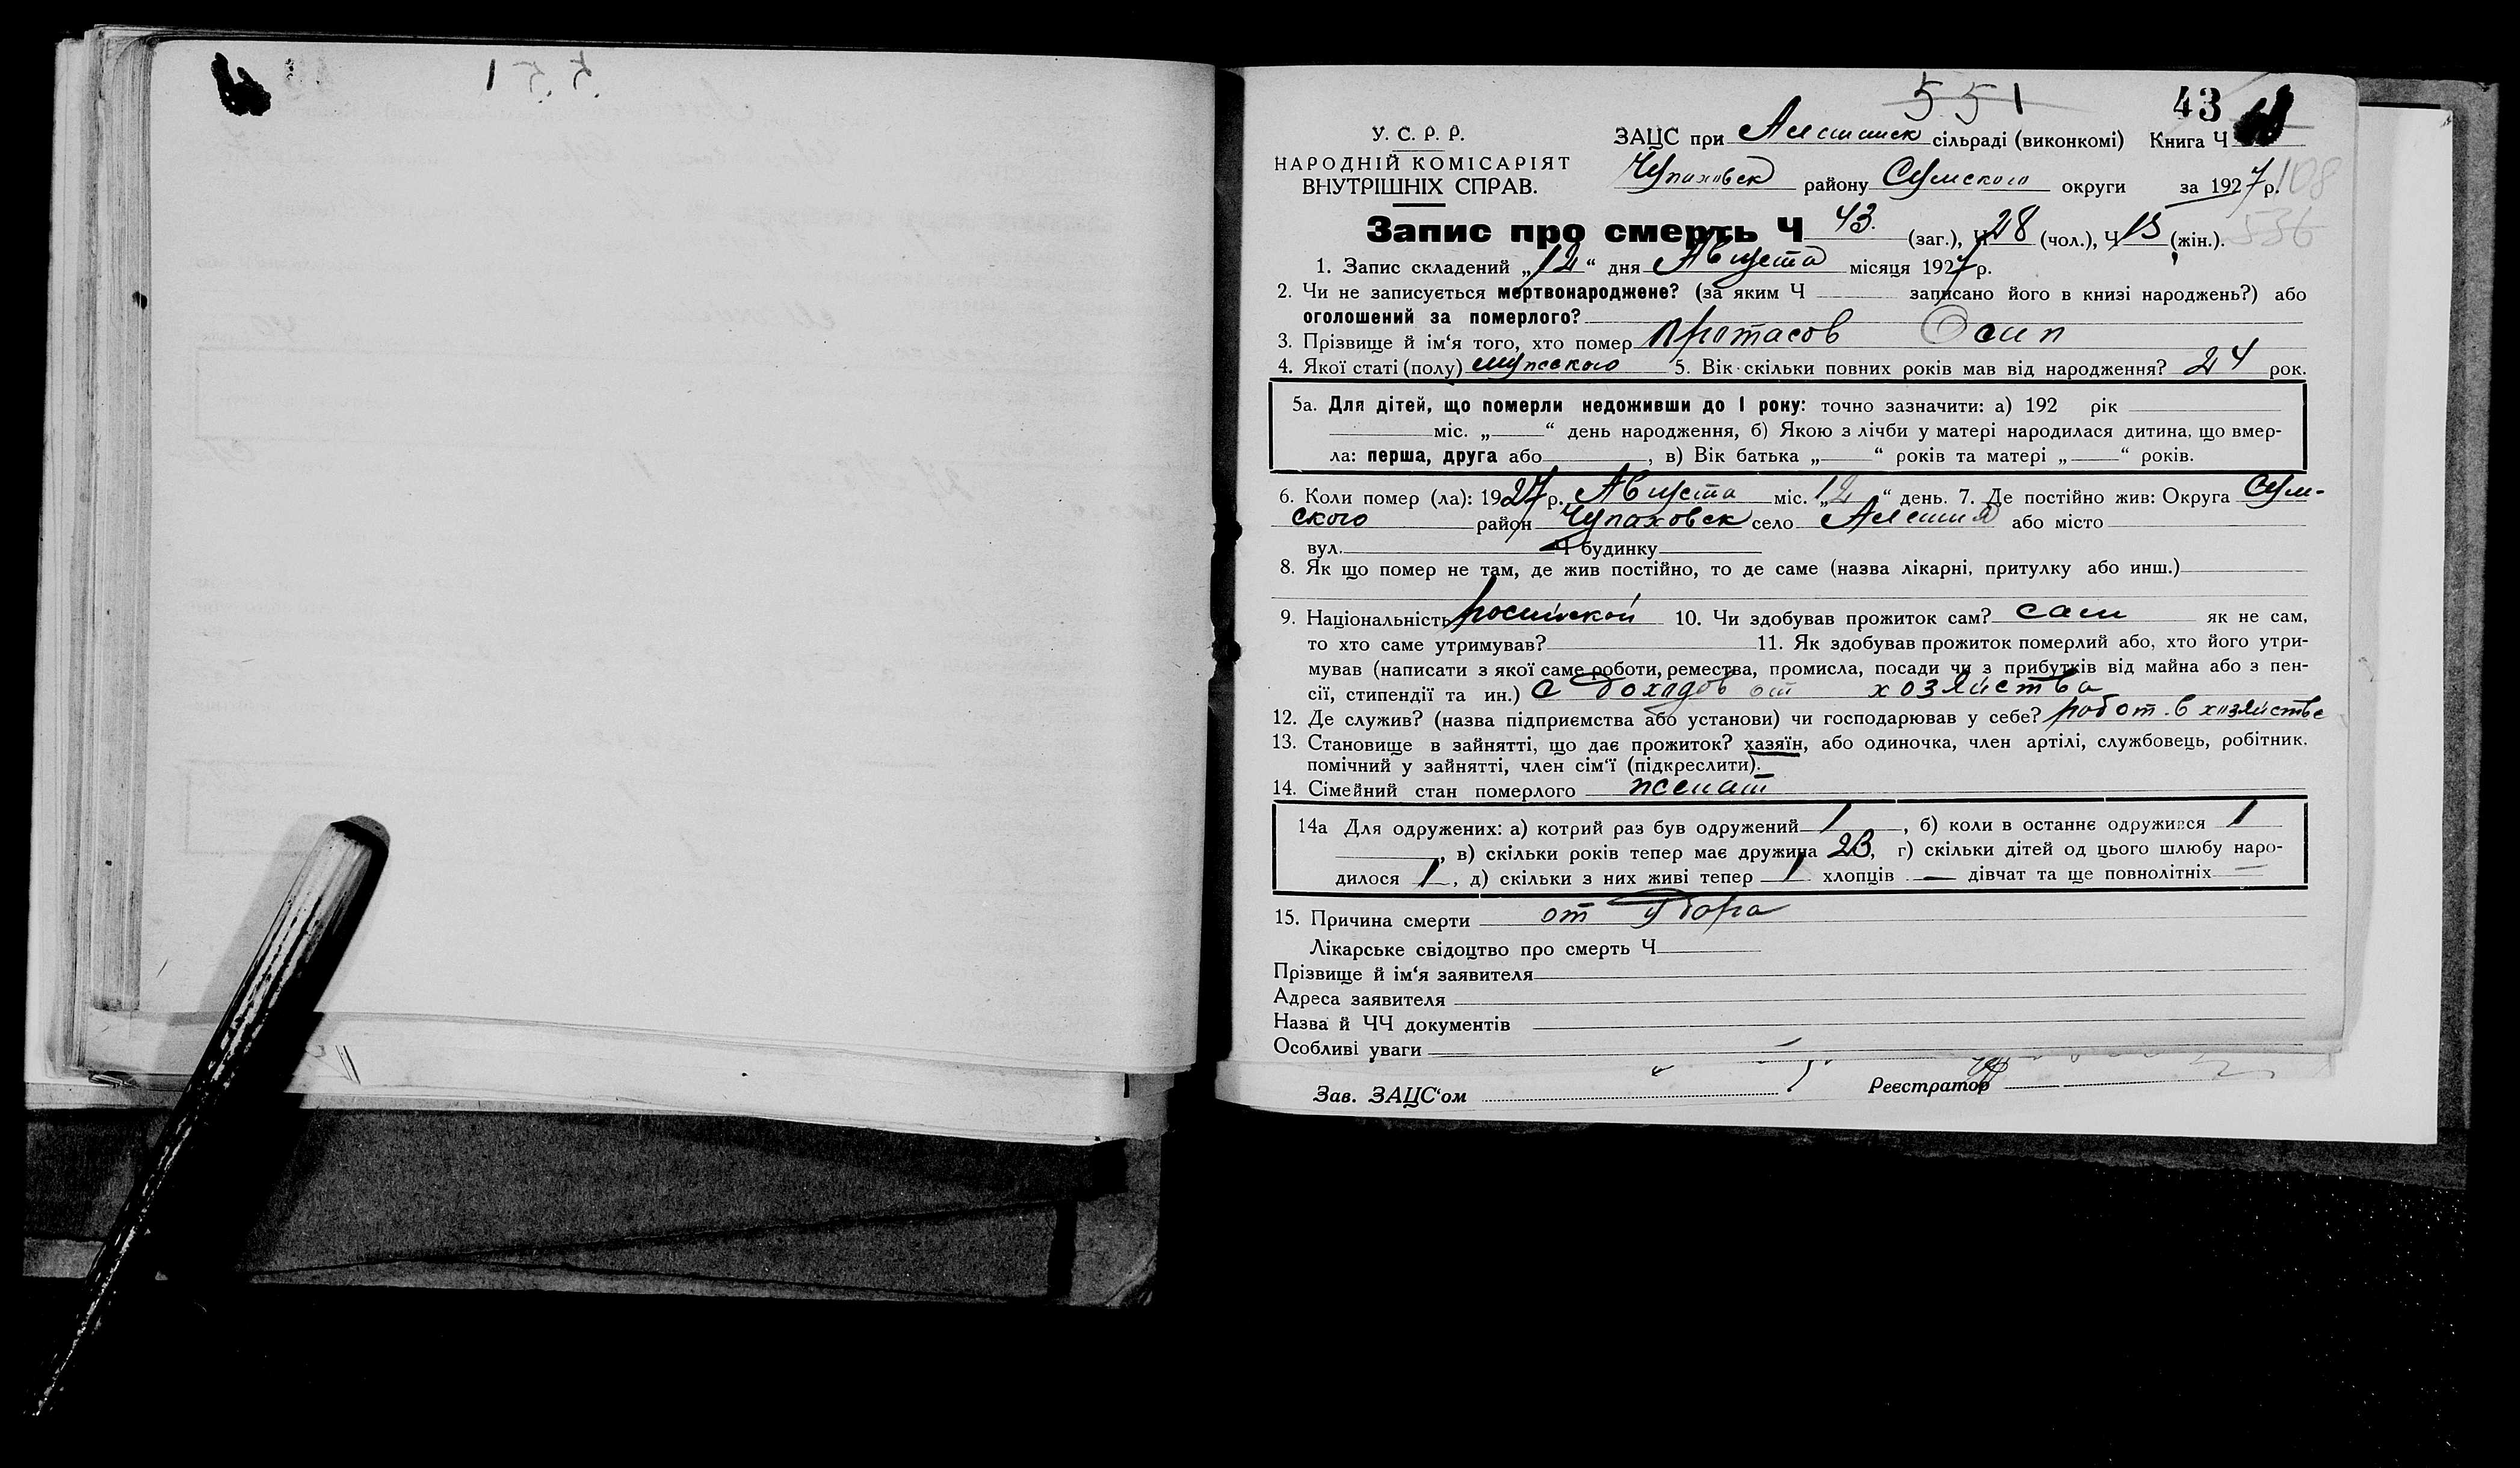 551
43
У. С. Р. Р.
НАРОДНІЙ КОМІСАРІЯТ
ВНУТРІШНІХ СПРАВ.
ЗАЦС при Алешинск сільраді (виконкомі) Книга Ч
Чупаховск району Сумского округи за 1927 р.
108
536
Запис про смерть Ч 43. (заг.), Ч 28 (чол.), Ч 15 (жін.).
1. Запис складений „12“ дня Августа місяця 1927 р.
2. Чи не записується мертвонароджене? (за яким Ч записано його в книзі народжень?) або
оголошений за померлого?
3. Прізвище й ім‘я того, хто помер Протасов Осип
4. Якої статі (полу) мужского 5. Вік скільки повних років мав від народження? 24 рок.
5а. Для дітей, що померли недоживши до 1 року: точно зазначити: а) 192 рік
міс. „ “ день народження, б) Якою з лічби у матері народилася дитина, що вмер-
ла: перша, друга або , в) Вік батька „ “ років та матері „ “ років.
6. Коли помер (ла): 1927 р. Августа міс. „12“ день. 7. Де постійно жив: Округа Сум-
ского район Чупаховск село Алешня або місто
вул. Ч будинку
8. Як що помер не там, де жив постійно, то де саме (назва лікарні, притулку або инш.)
9. Національність російской 10. Чи здобував прожиток сам? сам як не сам,
то хто саме утримував? 11. Як здобував прожиток померлий або, хто його утри-
мував (написати з якої саме роботи, ремества, промисла, посади чи з прибутків від майна або з пен-
сії, стипендії та ин.) С доходов от хозяйства
12. Де служив? (назва підприємства або установи) чи господарював у себе? работ. в хозяйстве
13. Становище в зайнятті, що дає прожиток? хазяїн, або одиночка, член артілі, службовець, робітник.
помічний у зайнятті, член сім‘ї (підкреслити).
14. Сімейний стан померлого женат
14а Для одружених: а) котрий раз був одружений 1 , б) коли в останнє одружився 1
, в) скільки років тепер має дружина 23, г) скільки дітей од цього шлюбу наро-
дилося 1 , д) скільки з них живі тепер 1 хлопців — дівчат та ще повнолітніх —
15. Причина смерти от
Лікарське свідоцтво про смерть Ч
Прізвище й ім‘я заявителя
Адреса заявителя
Назва й ЧЧ документів
Особливі уваги
Зав. ЗАЦС‘ом Реєстратор